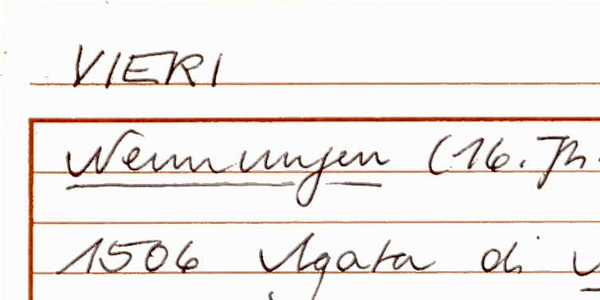 VIERI
Nennungen (16. Jh.
1506 Agata di